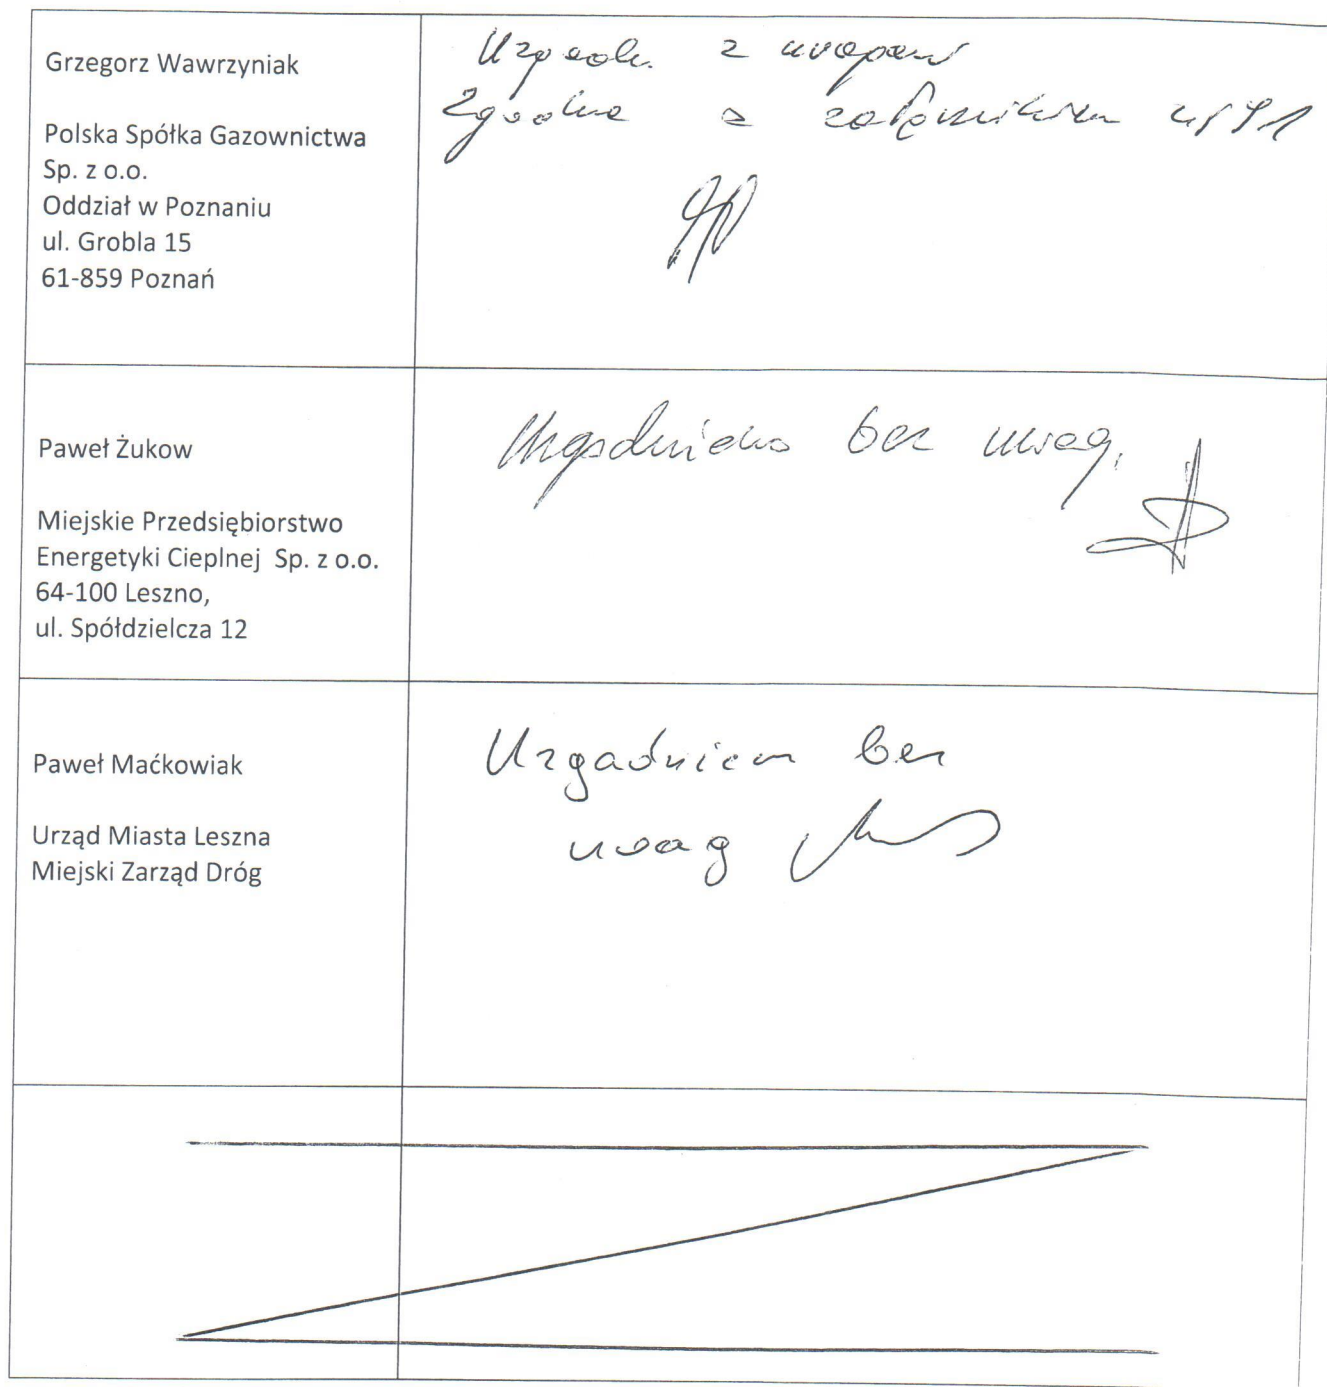 Grzegorz Wawrzyniak
Polska Spółka Gazownictwa
Sp. z o.o.
Oddział w Poznaniu
ul. Grobla 15
61-859 Poznań
z uwagami
zgodnie z załącznikiem nr 1
Paweł Żukow
Miejskie Przedsiębiorstwo
Energetyki Cieplnej Sp. z o.o.
64-100 Leszno,
ul. Spółdzielcza 12
Uzgodniono bez uwag.
Paweł Maćkowiak
Urząd Miasta Leszna
Miejski Zarząd Dróg
Uzgadniam bez
uwag